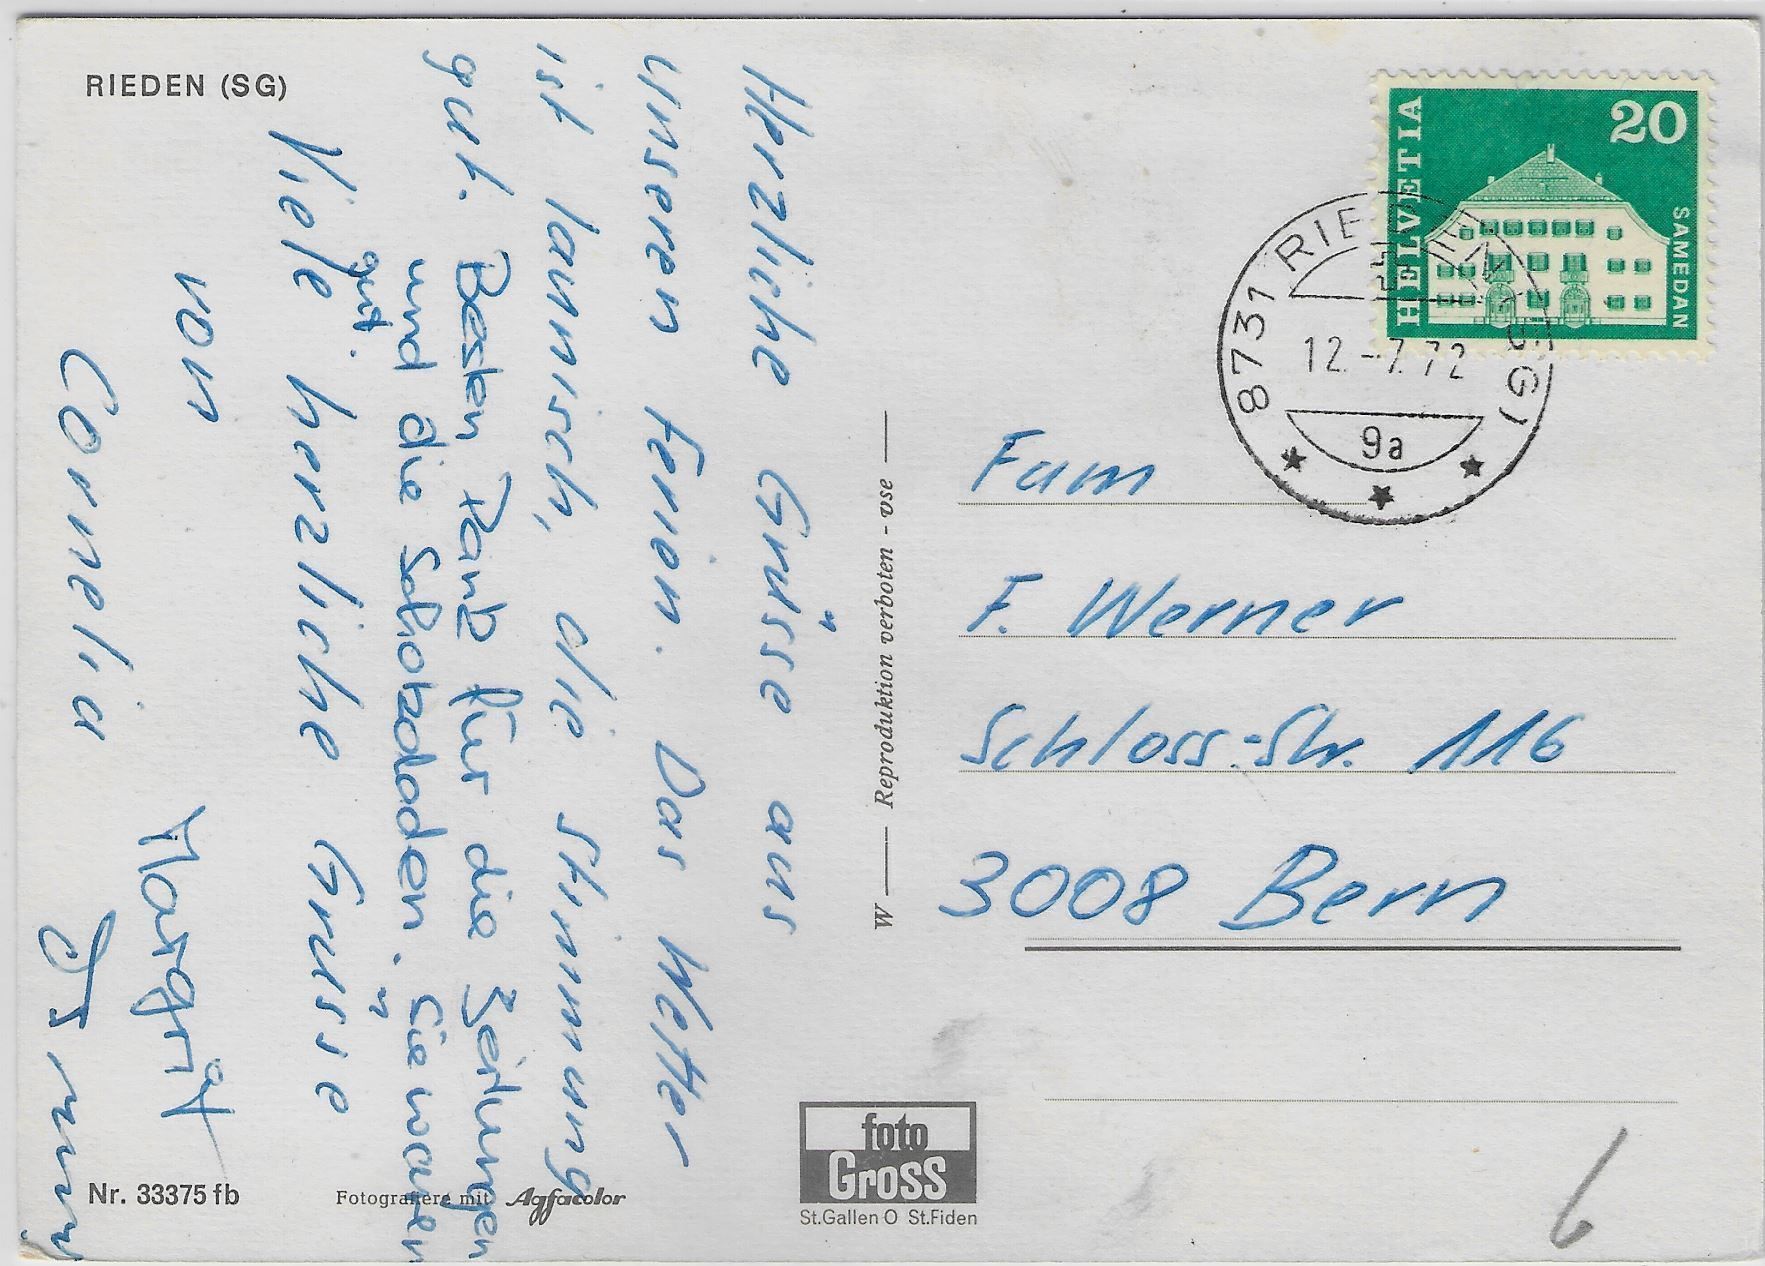 RIEDEN (SG)
Herzliche Grüsse aus
unseren Ferien. Das Wetter
ist launisch, die Stimmung
gut. Besten Dank für die Zeitungen
und die Schokoladen. Sie waren
gut.
Viele herzliche Grüsse
von
Cornelia
Margrit
Nr. 33375 fb
Fotografiere mit Agfacolor
W Reproduktion verboten - vse
foto
Gross
St.Gallen O St.Fiden
HELVETIA
20
SAMEDAN
8731 RIEDEN (SG)
12.-7.72
9a
Fam
F. Werner
Schloss-Str. 116
3008 Bern
6